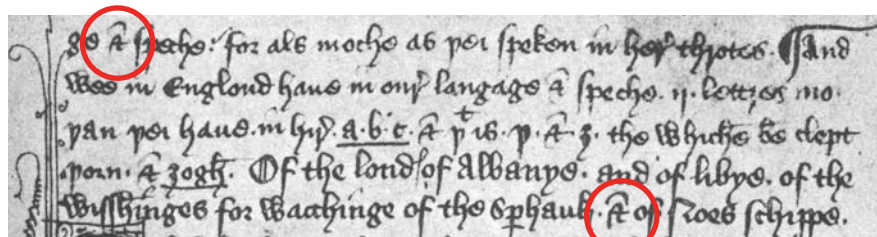 ge & speche: for als moche as þei speken in her throtes. ¶And
wee in Englond haue in our langage & speche. ij. lettres mo.
þan þei haue.in hir. a.b.c. & þᵗ is. þ. & ȝ. the whiche be clept
þorn. & ȝogh. Of the lond of Albanye. and of libye. of the
wisshinges for wacchinge of the sperhauk. & of Noes schippe.